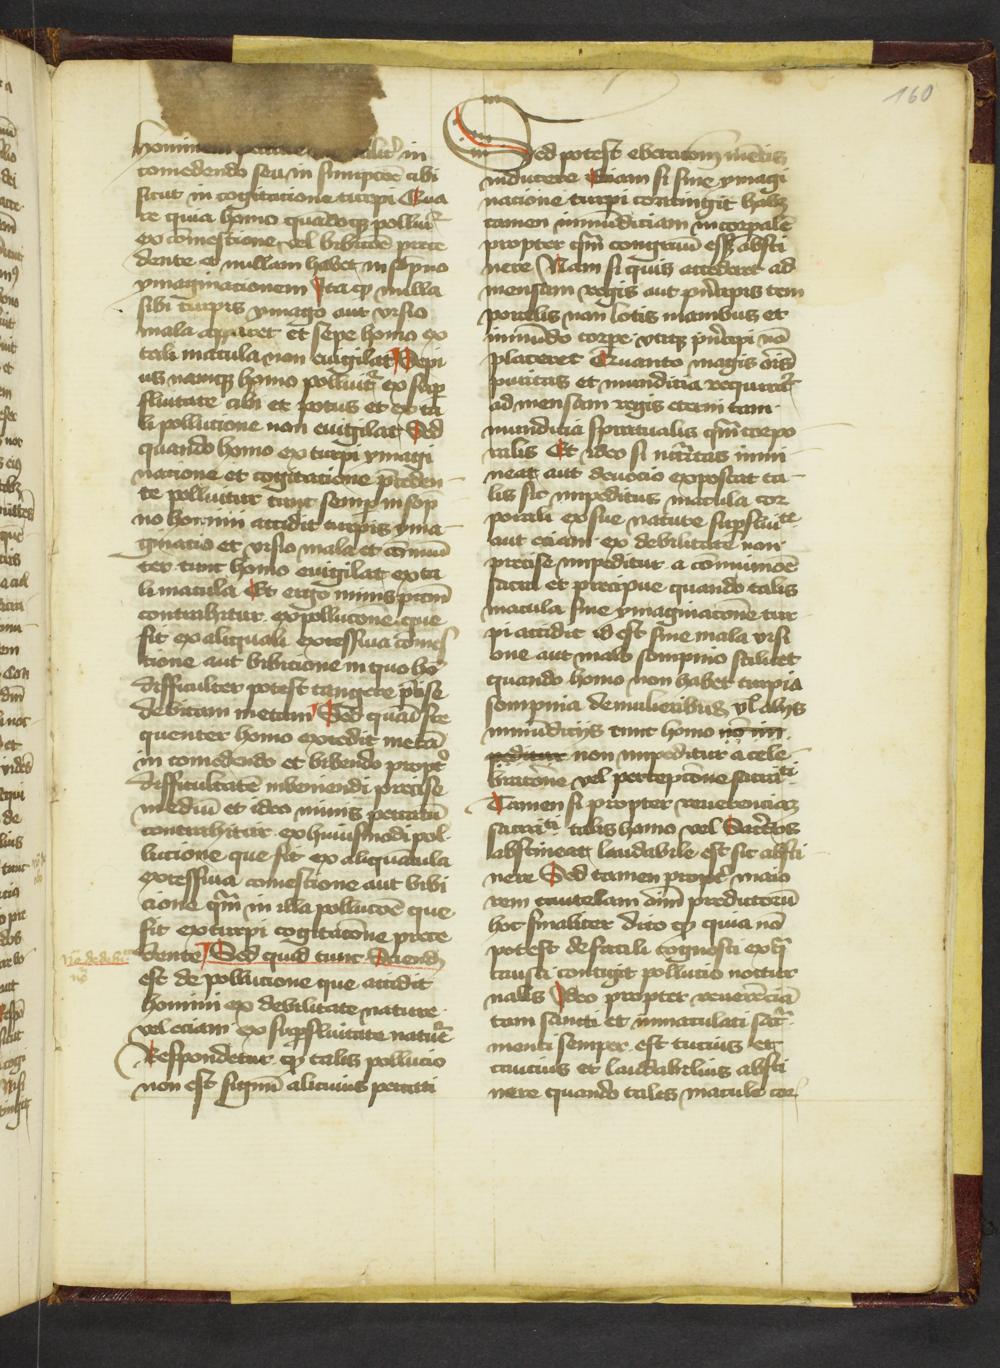 160
homin in
comedendo seu in sumpcōe cibi
sicut in cogitatione turpi Qua
re quia homo quādoqꝫ polluit᷑
ex comestione vel bibicōe prece
dente et nullam habet in sōpno
ymaginacionem Ita ꝙ nulla
sibi turpis ymago aut visio
mala apparet et sepe homo ex
tali macula non euigilat Sepi
us namqꝫ homo polluit᷑ ex suꝑ
fluitate cibi et potus et ex ta
li pollucione non euigilat Sed
quando homo ex turpi ymagi
nacione et cogitatione p̄ceden
te polluitur tunc semꝑ in sop
no homini accidit turpis yma
ginatio et visio mala et cōmuni
ter tunc homo euigilat ex ta
li macula Et ergo minus pctm̄
contrahitur ex pollucōne que
fit ex aliquali excessiua comes
tione aut bibicione in quo hō
difficulter potest tangere p̄cise
debitam metam Sed quāuis fre
quenter homo excedit metā
in comedendo et bibendo propt᷑
difficultatē inveniendi precise
mediū et ideo minus peccatū
contrahitur ex huiusmodi pol
lucione que fit ex aliquātula
excessiua comestione aut bibi
cione qm̄ in illa pollucōe que
fit ex turpi cogitacōne prece
dente Sed quid tunc dicendū
est de pollucione que accidit
homini ex debilitate nature
vel eciam ex suꝑfluitate natur᷑
Respondetur ꝙ talis pollucio
non est signū alicuius peccati
Sed potest ebetacōem mentis
inducere Etiam si sine ymagi
nacione turpi contingit habꝫ
tamen inmūdiciam in corpale
propter qm̄ congruū esset absti
nere Nam si quis accederet ad
mensam regis aut pn̄cipis tem
poralis non lotis manibus et
inmūdo corpe vtiqꝫ pn̄cipi nō
placeret Quanto magis oīs
puritas et mundicia requirit᷑
ad mensam regis eterni tam
mundicia spiritualis qm̄ corpo
ralis Et ideo si nccītas immi
neat aut deuocio exposcat ta
lis sic impeditus macula cor
porali ex sue nature suꝑfluite
aut eciam ex debilitate non
precise impeditur a comunioē
sacra et precipue quando talis
macula sine ymaginacōne tur
pi accidit id est sine mala visi
one aut malo sompnio scilicet
quando homo non habet turpia
sompnia de mulieribus vl̄ alijs
inmūdicijs tunc homo nō im
peditur non impeditur a cele
bracōne vel percepcione sacrāti
Tamen si propter reuerenciam
sacrāti talis homo vel sacerdos
abstineat laudabile est sic absti
nere Sed tamen propt᷑ maio
rem cautelam oīm predictorū
hoc finaliter dico ꝙ quia nō
potest de facili cognosci ex qͣ
causa contigit pollucio noctur
nalis Ideo propter reuerēciā
tam sancti et inmaculati sac᷑
menti semper est tucius et
caucius et laudabilius absti
nere quando tales macule cor